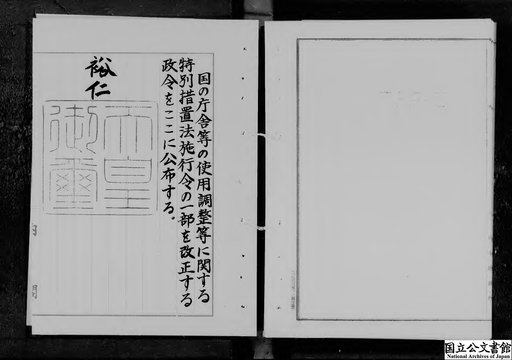 国の庁舎等の使用調整等に関する
特別措置法施行令の一部を改正する
政令をここに公布する。
裕仁
天皇
御璽
国立公文書館
National Archives of Japan